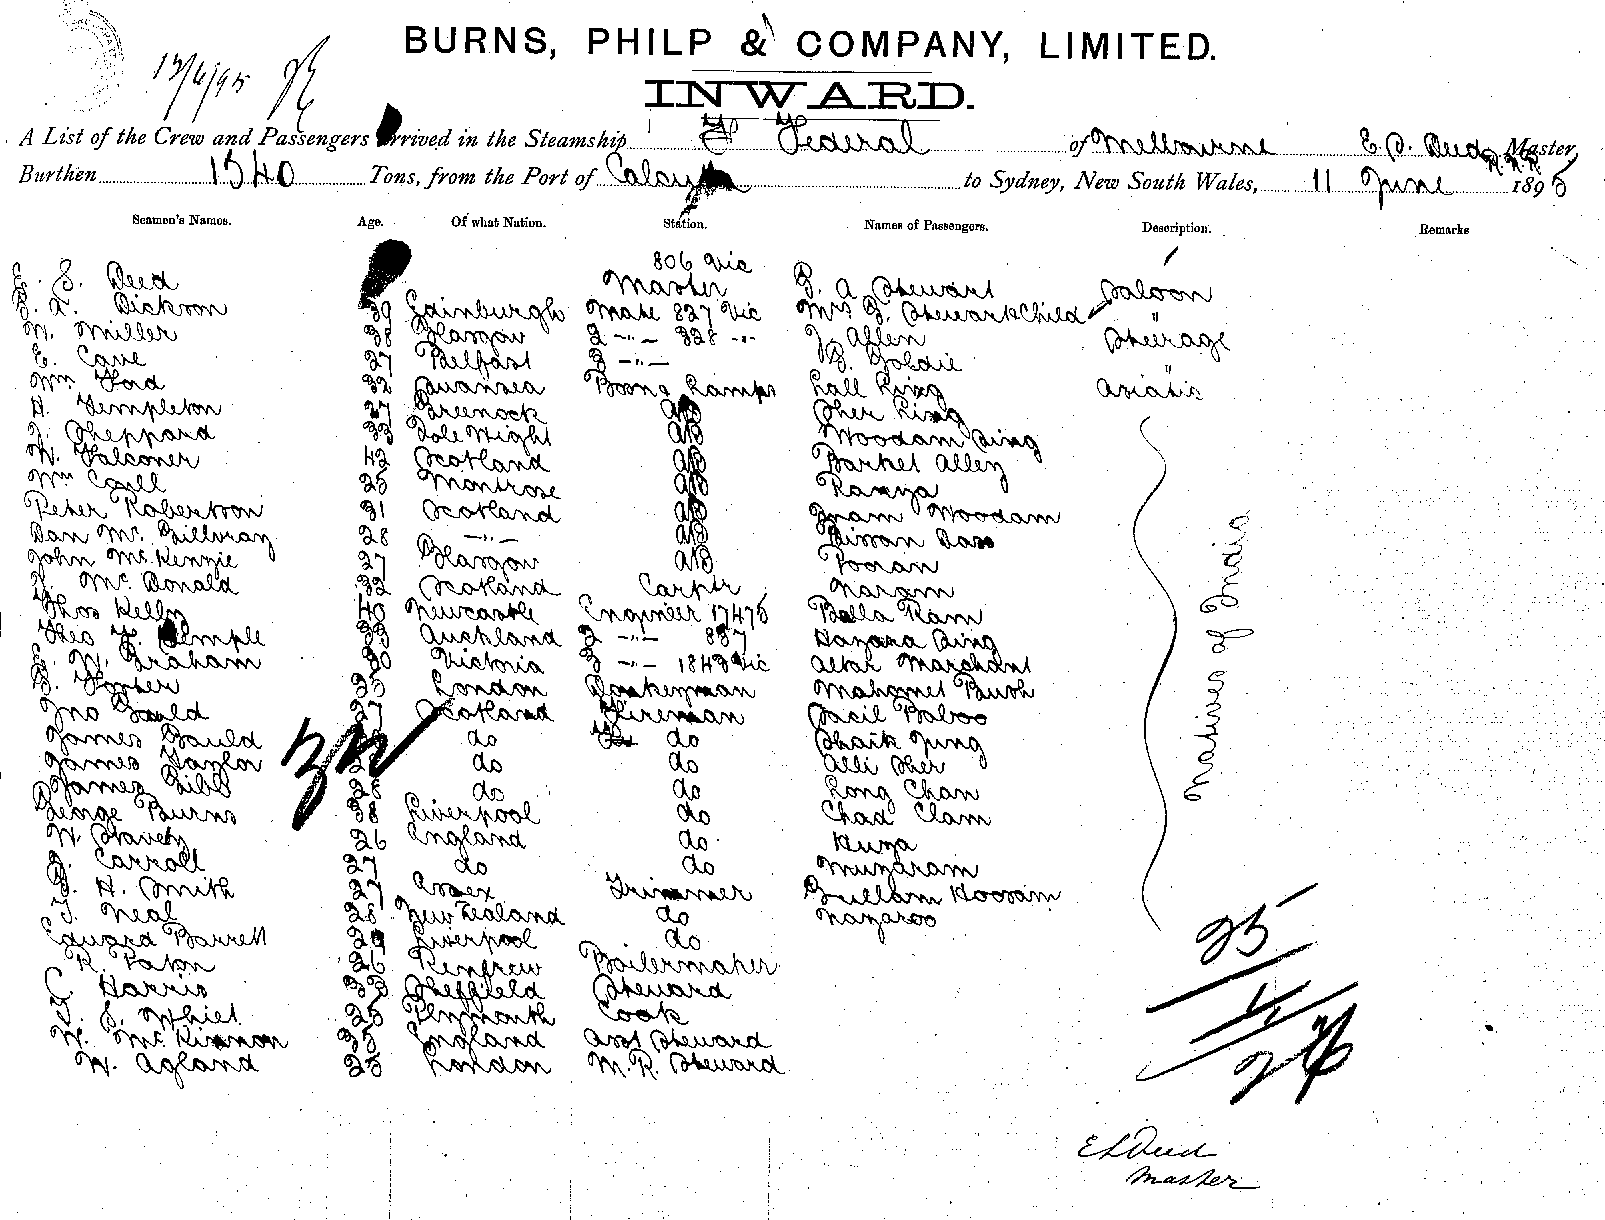 BURNS, PHILP & COMPANY, LIMITED.
12/6/95
INWARD.
A List of the Crew and Passengers arrived in the Steamship Federal of Melbourne E. S. Deed R.N.R. Master,
Burthen 1540 Tons, from the Port of Calcutta to Sydney, New South Wales, 11 June 1895
Seamen's Names. Age. Of what Nation. Station. Names of Passengers. Description. Remarks
E. S. Deed 806 Vic Master G. A. Stewart Saloon
Dickson 39 Edinburgh Mate 827 Vic Mrs G. Stewart & Child "
W. Miller 38 Glasgow 2 -"- 328 -"- J. Allen Steerage
E. Cave 27 Belfast 3 -"- Goldie "
Wm Ford 32 Swansea Bosns Lamps Lall Sing Asiatic
H. Templeton 27 Greenock AB Sher Sing
J. Sheppard 33 Isle Wight AB Woodam Sing
W. Falconer 42 Scotland AB Barket Alley
Wm Cgill 25 Montrose AB Ramya
Peter Robertson 31 Scotland AB Woodam
Dan Mc Gillvray 28 -"- AB Bissan Dass
John McKenzie 27 Glasgow AB Pooran
Mc Donald 32 Scotland Carptr Naram
Thos Kelly 40 Newcastle Engineer 17475 Bella Ram
Temple 33 Auckland 2 -"- 887 Hazara Sing
W. Graham 30 Victoria 3 -"- 1843 Vic Altar Marchant
Foster 25 London Donkeyman Mahomet Bush
Jno Gauld 27 Scotland Fireman Bacil Baboo
James Gauld do do Shaik Jung
James Taylor do do Alli Sher
James Gibb 28 do do Long Chan
George Burns 38 Liverpool do Chad Clam
W. Stavely 26 England do Huza
J. Carroll 27 do do Mungaram
G. H. Smith 27 Essex Trimmer Gullam Hoosam
T. Neal 28 New Zealand do Nazaroo
Edward Barrett 29 Liverpool do
R. Paton 26 Renfrew Boilermaker
C. Harris 33 Sheffield Steward
J. S. Whiet 25 Plymouth Cook
W. McKinnon 35 England Asst Steward
W. Agland 25 London M. R. Steward
Natives of India
32
25
1/2
26
E S Deed
Master